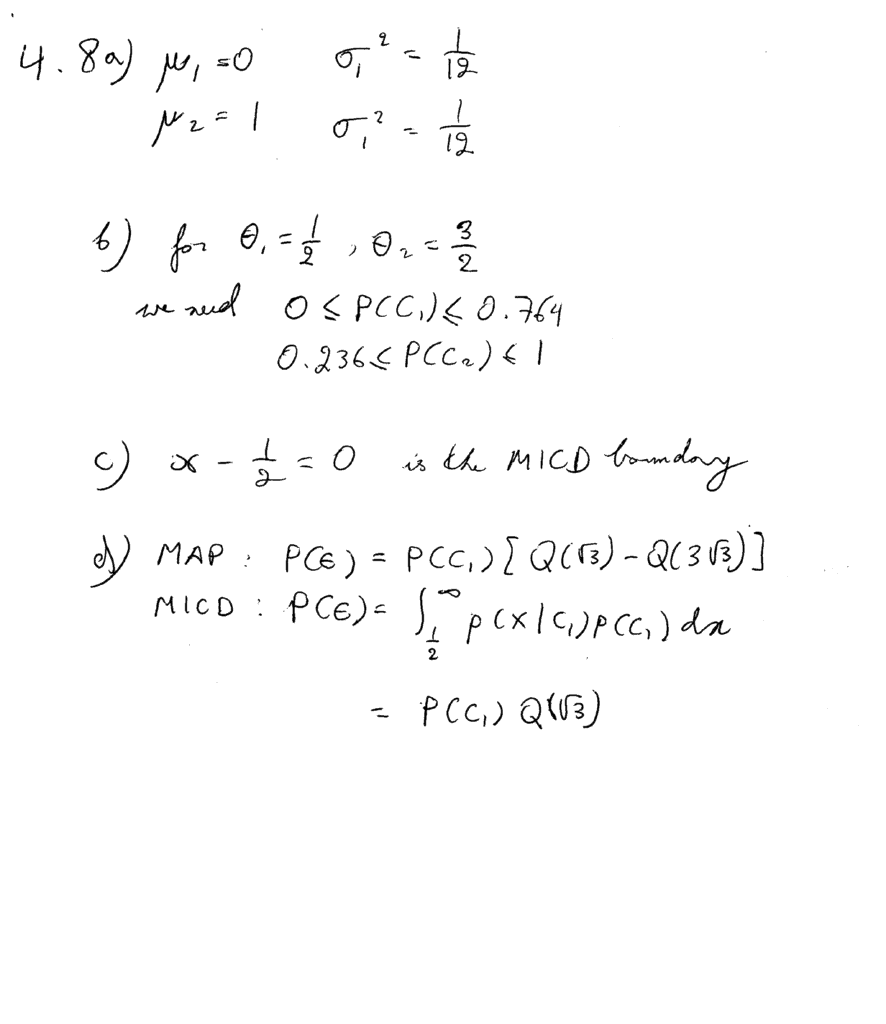 4.8a) μ₁ = 0 σ₁² = 1/12
μ₂ = 1 σ₁² = 1/12
b) for θ₁ = 1/2 , θ₂ = 3/2
we need 0 ≤ P(C₁) ≤ 0.764
0.236 ≤ P(C₂) ≤ 1
c) x - 1/2 = 0 is the MICD boundary
d) MAP : P(ϵ) = P(C₁) [ Q(√3) - Q(3√3) ]
MICD : P(ϵ) = ∫_{1/2}^∞ p(x|C₁)P(C₁) dx
= P(C₁) Q(√3)